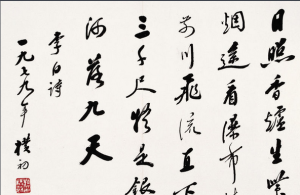 日照香爐生紫
烟遥看瀑布
前川飛流直下
三千尺疑是銀
河落九天
李白詩
一九七九年 樸初